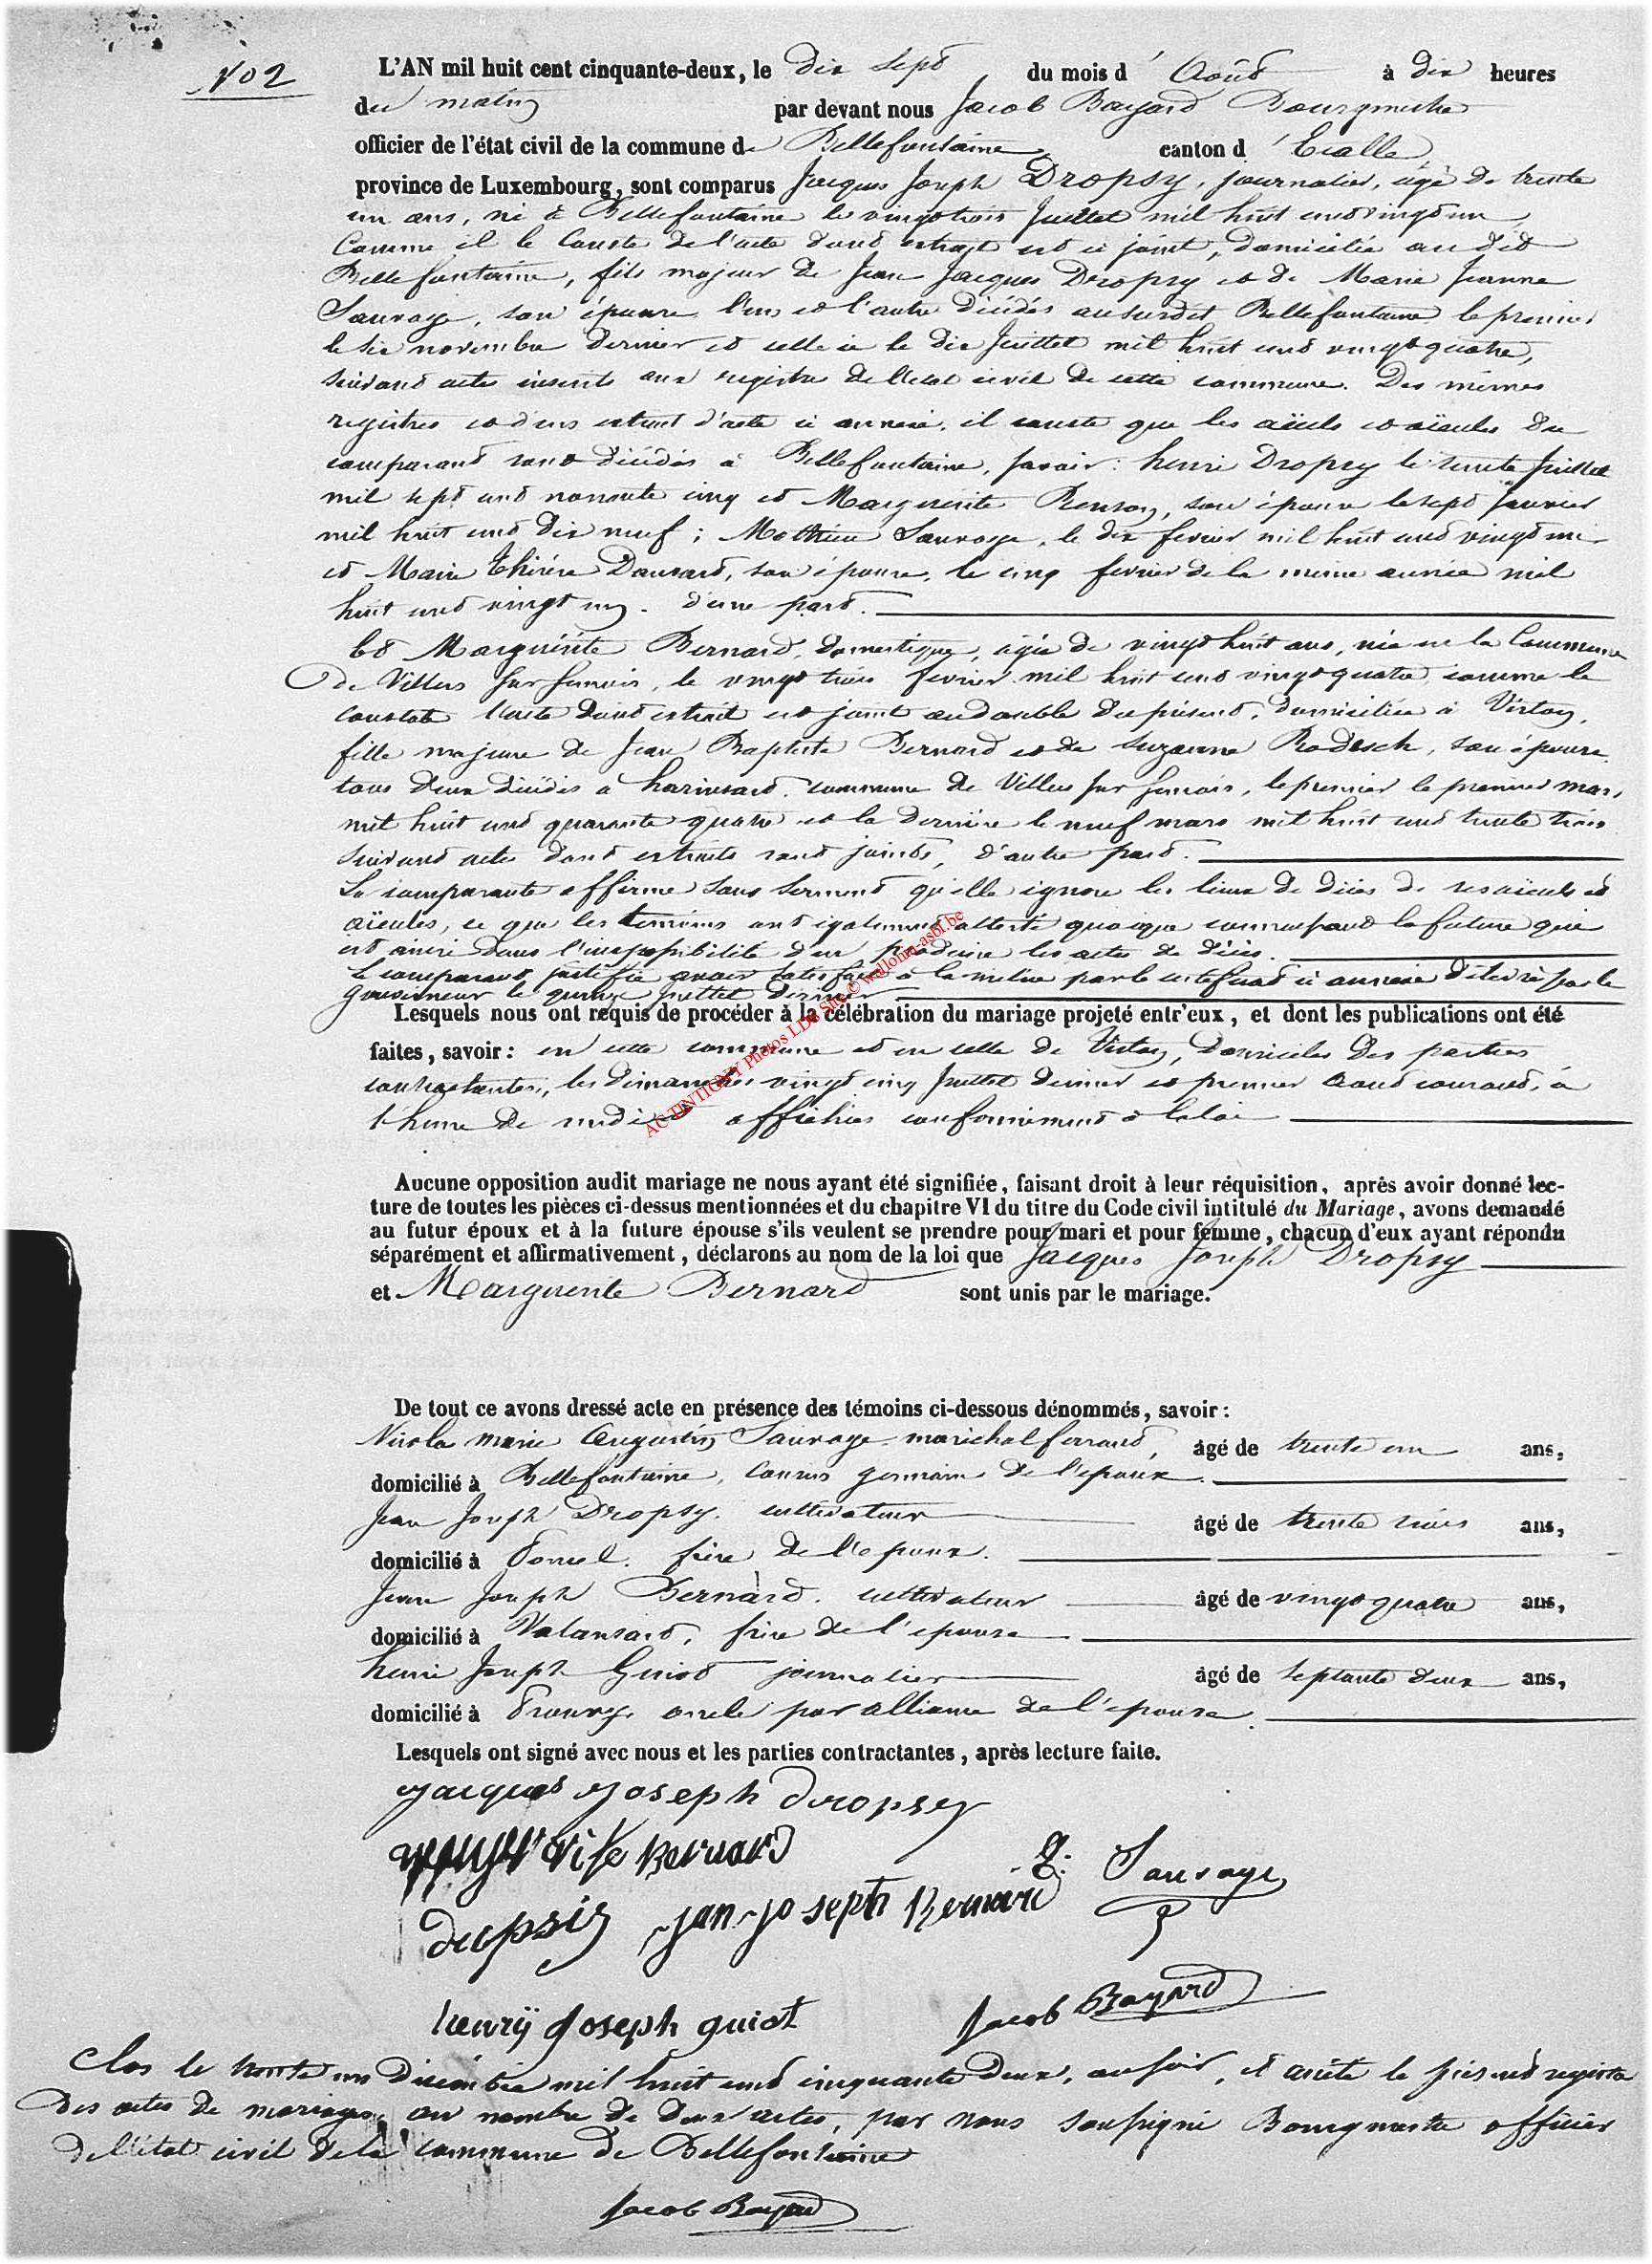 N° 2
L'AN mil huit cent cinquante-deux, le dix sept du mois d' Août à dix heures
du matin par devant nous Jacob Bayard Bourgmestre
officier de l'état civil de la commune de Bellefontaine canton d' Etalle
province de Luxembourg, sont comparus Jacques Joseph Dropsy, journalier, âgé de trente
un ans, né à Bellefontaine le vingt trois Juillet mil huit cent vingt un
comme il le conste de l'acte dont extrait est ci joint, domicilié au dit
Bellefontaine, fils majeur de Jean Jacques Dropsy et de Marie Jeanne
Sauvage, son épouse, l'un et l'autre décédés au susdit Bellefontaine, le premier
le six novembre dernier et celle ci le dix Juillet mil huit cent vingt quatre,
suivant actes inscrits aux registres de l'état civil de cette commune. Des mêmes
registres et d'un extrait d'acte ci annexé, il conste que les aïeuls et aïeules du
comparant sont décédés à Bellefontaine, savoir : henri Dropsy le trente Juillet
mil sept cent nonante cinq et Marguerite Renson, son épouse le sept Janvier
mil huit cent dix neuf ; Mathieu Sauvage, le dix fevrier mil huit cent vingt un
et Marie Thérèse Dausard, son épouse, le cinq fevrier de la même année mil
huit cent vingt un. d'une part.
Et Marguérite Bernard, domestique, âgée de vingt huit ans, née en la Commune
de Villers sur Semois, le vingt trois fevrier mil huit cent vingt quatre, comme le
constate l'acte dont extrait est joint au double du présent, domiciliée à Virton,
fille majeure de Jean Baptiste Bernard et de Suzanne Radesch, son épouse
tous deux décédés à harinsard, commune de Villers sur Semois, le premier le premier mars
mil huit cent quarante quatre et la dernière le neuf mars mil huit cent trente trois
suivant actes dont extraits sont joints, d'autre part.
La comparante affirme sous serment qu'elle ignore les lieux de décès de ses aïeuls et
aïeules, ce que les témoins ont également attesté quoique connaissant la future qui
est ainsi dans l'impossibilité d'en produire les actes de décès.
Le comparant justifie avoir satisfait à la milice par le certificat ci annexé délivré par le
gouverneur le quinze Juillet dernier
Lesquels nous ont requis de procéder à la célébration du mariage projeté entr'eux, et dont les publications ont été
faites, savoir : en cette commune et en celle de Virton, domiciles des parties
contractantes, les dimanches vingt cinq Juillet dernier et premier Août courant, à
l'heure de midi et affichées conformément à la loi
ACTINTIGNY Photos LDB Site © wallonia-asbl.be
Aucune opposition audit mariage ne nous ayant été signifiée, faisant droit à leur réquisition, après avoir donné lec-
ture de toutes les pièces ci-dessus mentionnées et du chapitre VI du titre du Code civil intitulé du Mariage, avons demandé
au futur époux et à la future épouse s'ils veulent se prendre pour mari et pour femme, chacun d'eux ayant répondu
séparément et affirmativement, déclarons au nom de la loi que Jacques Joseph Dropsy
et Marguerite Bernard sont unis par le mariage.
De tout ce avons dressé acte en présence des témoins ci-dessous dénommés, savoir :
Nicolas marie Augustin Sauvage maréchal ferrand, âgé de trente un ans,
domicilié à Bellefontaine, cousin germain de l'époux.
Jean Joseph Dropsy, cultivateur âgé de trente trois ans,
domicilié à frère de l'époux.
Jean Joseph Bernard, cultivateur âgé de vingt quatre ans,
domicilié à Valansart, frère de l'épouse
henri Joseph Guiot journalier âgé de septante deux ans,
domicilié à oncle par alliance de l'épouse.
Lesquels ont signé avec nous et les parties contractantes, après lecture faite.
Jacques Joseph dropsy
Bernard
Sauvage
jan joseph Bernard
henrÿ Joseph guiot
Jacob Bayard
Clos le trente un Décembre mil huit cent cinquante deux, au soir, et arrêté le présent registre
des actes de mariages, au nombre de deux actes, par nous soussigné Bourgmestre officier
de l'état civil de la commune de Bellefontaine
Jacob Bayard